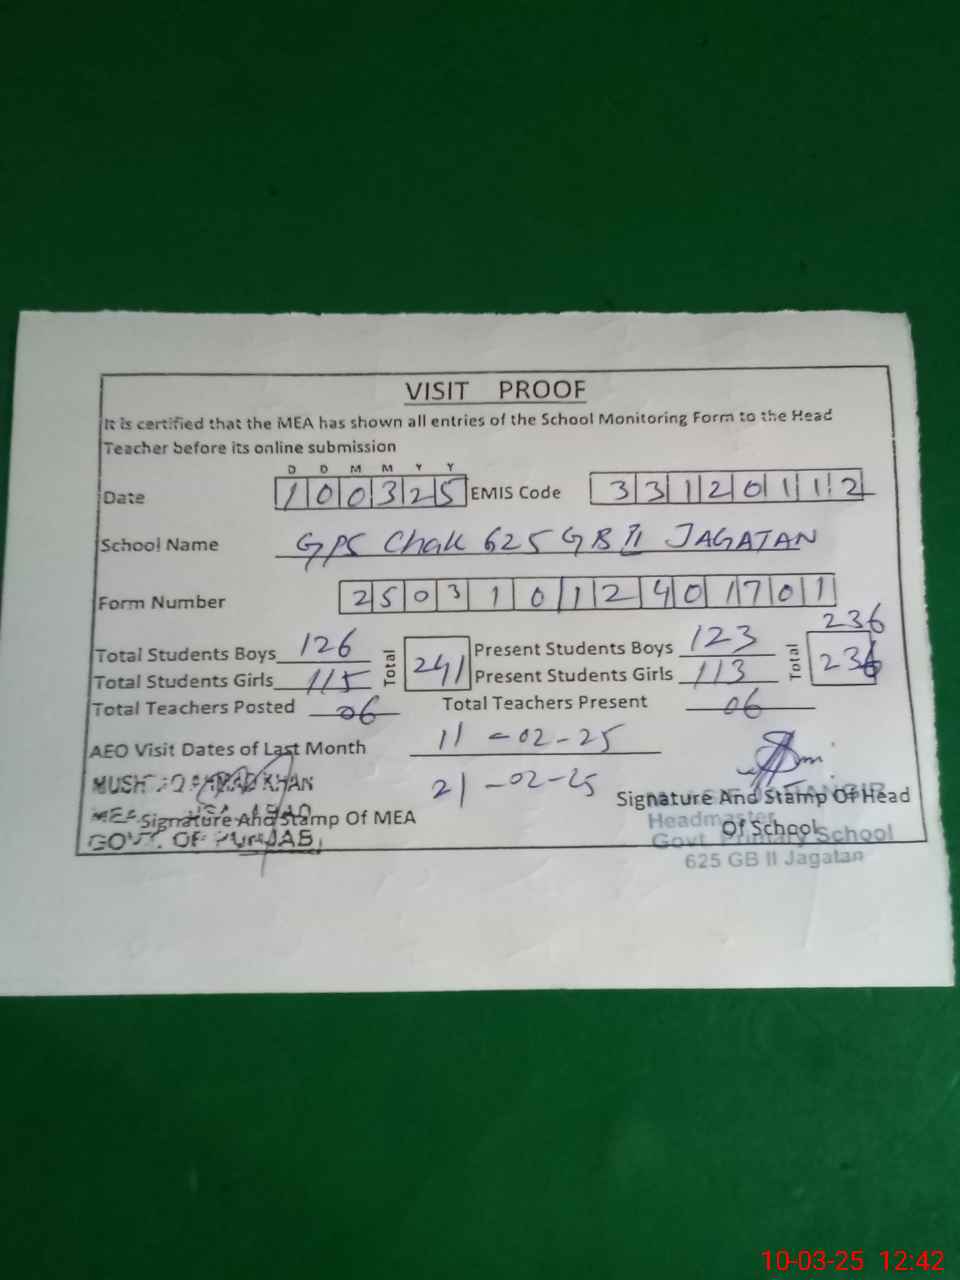 VISIT PROOF
It is certified that the MEA has shown all entries of the School Monitoring Form to the Head
Teacher before its online submission
D D M M Y Y
Date 100325 EMIS Code 33120112
School Name GPS Chak 625 GB II JAGATAN
Form Number 25031012401701
236
Total Students Boys 126 Total 241 Present Students Boys 123 Total 236
Total Students Girls 115 Present Students Girls 113
Total Teachers Posted 06 Total Teachers Present 06
AEO Visit Dates of Last Month 11-02-25
21-02-25
MUSHTAQ AHMAD KHAN
MEA
Signature And Stamp Of MEA
GOVT. OF PUNJAB
Signature And Stamp Of Head
Of School
Headmaster
Govt Primary School
625 GB II Jagatan
10-03-25 12:42